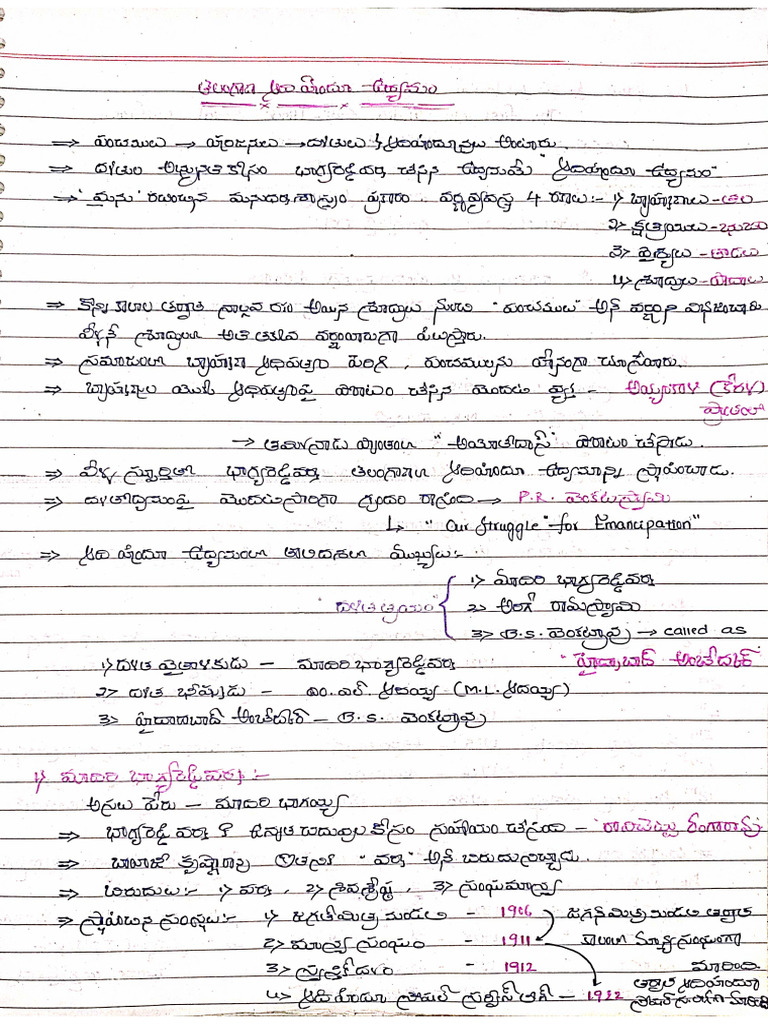 తెలంగాణ ఆది హిందూ ఉద్యమం
=> పంచములు → హరిజనులు → దళితులు / ఆదిహిందువులు అంటారు.
=> దళితుల అభ్యున్నతి కోసం భాగ్యరెడ్డివర్మ చేసిన ఉద్యమమే "ఆదిహిందూ ఉద్యమం"
→ 'మను' రచించిన మనుధర్మశాస్త్రం ప్రకారం వర్ణవ్యవస్థ 4 రకాలు:- 1) బ్రాహ్మణులు - తల
2> క్షత్రియులు - భుజాలు
3> వైశ్యులు - తొడలు
4) శూద్రులు - పాదాలు
=> కొన్ని కాలాల తర్వాత నాల్గవ రకం అయిన శూద్రుల నుండి "పంచములు" అనే వర్ణాన్ని విభజించారు
వీళ్లనే శూద్రులలో అతి శూద్ర వర్ణీయులుగా పిలుస్తారు.
=> సమాజంలో బ్రాహ్మణ ఆధిపత్యం పెరిగి, పంచములను హీనంగా చూసేవారు.
=> బ్రాహ్మణుల యొక్క ఆధిపత్యంపై పోరాటం చేసిన మొదటి వ్యక్తి - అయ్యంకాళి (కేరళ)
ప్రాంతంలో
→ తమిళనాడు ప్రాంతంలో "అయోతిదాస్" పోరాటం చేసాడు.
=> వీళ్ళ స్ఫూర్తితో భాగ్యరెడ్డివర్మ తెలంగాణలో ఆదిహిందూ ఉద్యమాన్ని స్థాపించాడు.
=> దళితోద్యమంపై మొదటిసారిగా గ్రంథం రాసింది → P.R. వెంకటస్వామి
↳ "Our Struggle for Emancipation"
=> ఆది హిందూ ఉద్యమంలో తొలిదశలో ముఖ్యులు:-
"దళితత్రయం" { 1> మాదరి భాగ్యరెడ్డివర్మ
2> అరిగే రామస్వామి
3> B.S. వెంకట్రావు → called as
1) దళిత వైతాళికుడు - మాదరి భాగ్యరెడ్డివర్మ "హైద్రాబాద్ అంబేద్కర్"
2> దళిత భీష్ముడు - ఎం.ఎల్. ఆదయ్య (M.L. ఆదయ్య)
3> హైదరాబాద్ అంబేద్కర్ - B.S. వెంకట్రావు
1) మాదరి భాగ్యరెడ్డివర్మ :-
అసలు పేరు - మాదరి భాగయ్య
=> భాగ్యరెడ్డి వర్మ కి ఉన్నత చదువుల కోసం సహాయం చేసింది - రావిచెట్టు రంగారావు
=> బాలాజీ కృష్ణారావు ఇతనికి "వర్మ" అనే బిరుదునిచ్చారు.
=> బిరుదులు:- 1) వర్మ, 2) శివశ్రేష్ఠ, 3) సంఘమాన్య
=> స్థాపించిన సంస్థలు:- 1) జగన్‌మిత్ర మండలి - 1906 జగన్‌మిత్ర మండలి తర్వాత
2> మాన్య సంఘం - 1911 కాలంలో మాన్యసంఘంగా
3> స్వస్తిక్ దళం - 1912 మారింది
4> ఆది హిందూ సోషల్ సర్వీస్ లీగ్ - 1922 తర్వాత ఆదిహిందూ